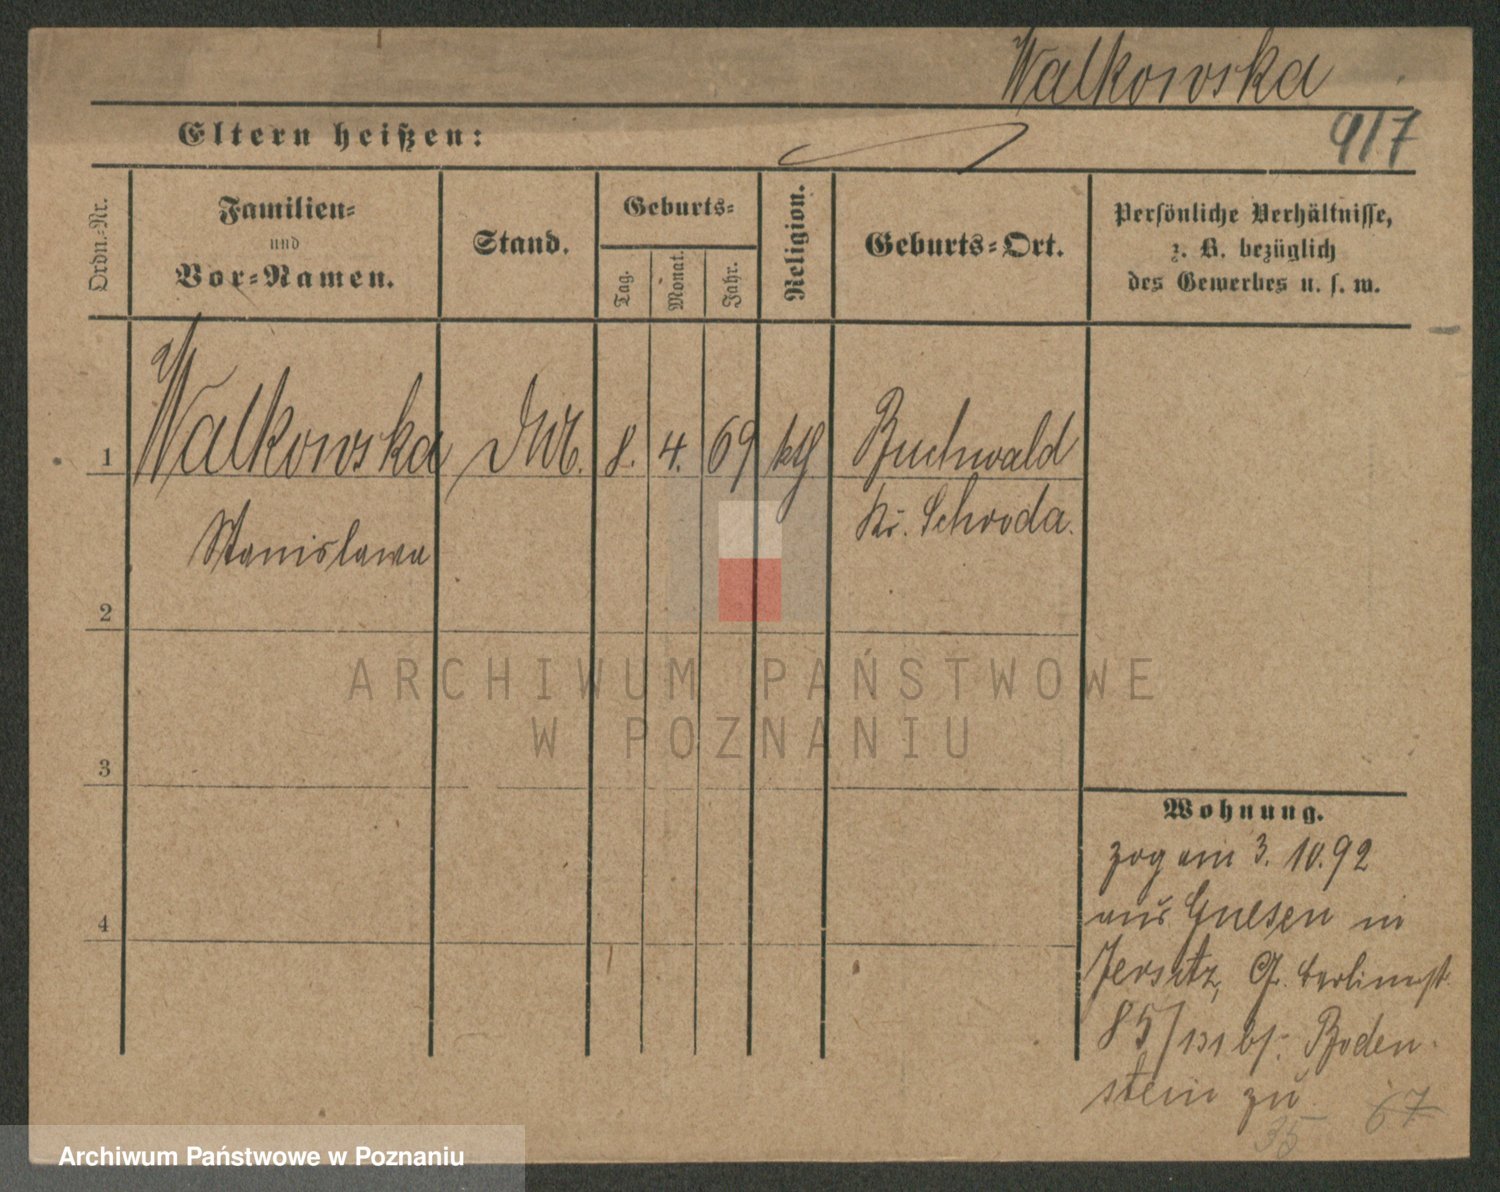 Walkowska
Eltern heißen:
917
Ordn.-Nr.
Familien-
und
Vor-Namen.
Stand.
Geburts-
Tag.
Monat.
Jahr.
Religion.
Geburts-Ort.
Persönliche Verhältnisse,
z. B. bezüglich
des Gewerbes u. s. w.
1 Walkowska 8. 4. 69 kth Buchwald
Stanislawa Kr. Schroda.
2
ARCHIWUM PAŃSTWOWE
W POZNANIU
3
Wohnung.
zog am 3. 10. 92
aus Gnesen in
4
Jersitz, Gr. Berlinerst.
85/131 bs. Boden-
stein zu
35 67
Archiwum Państwowe w Poznaniu